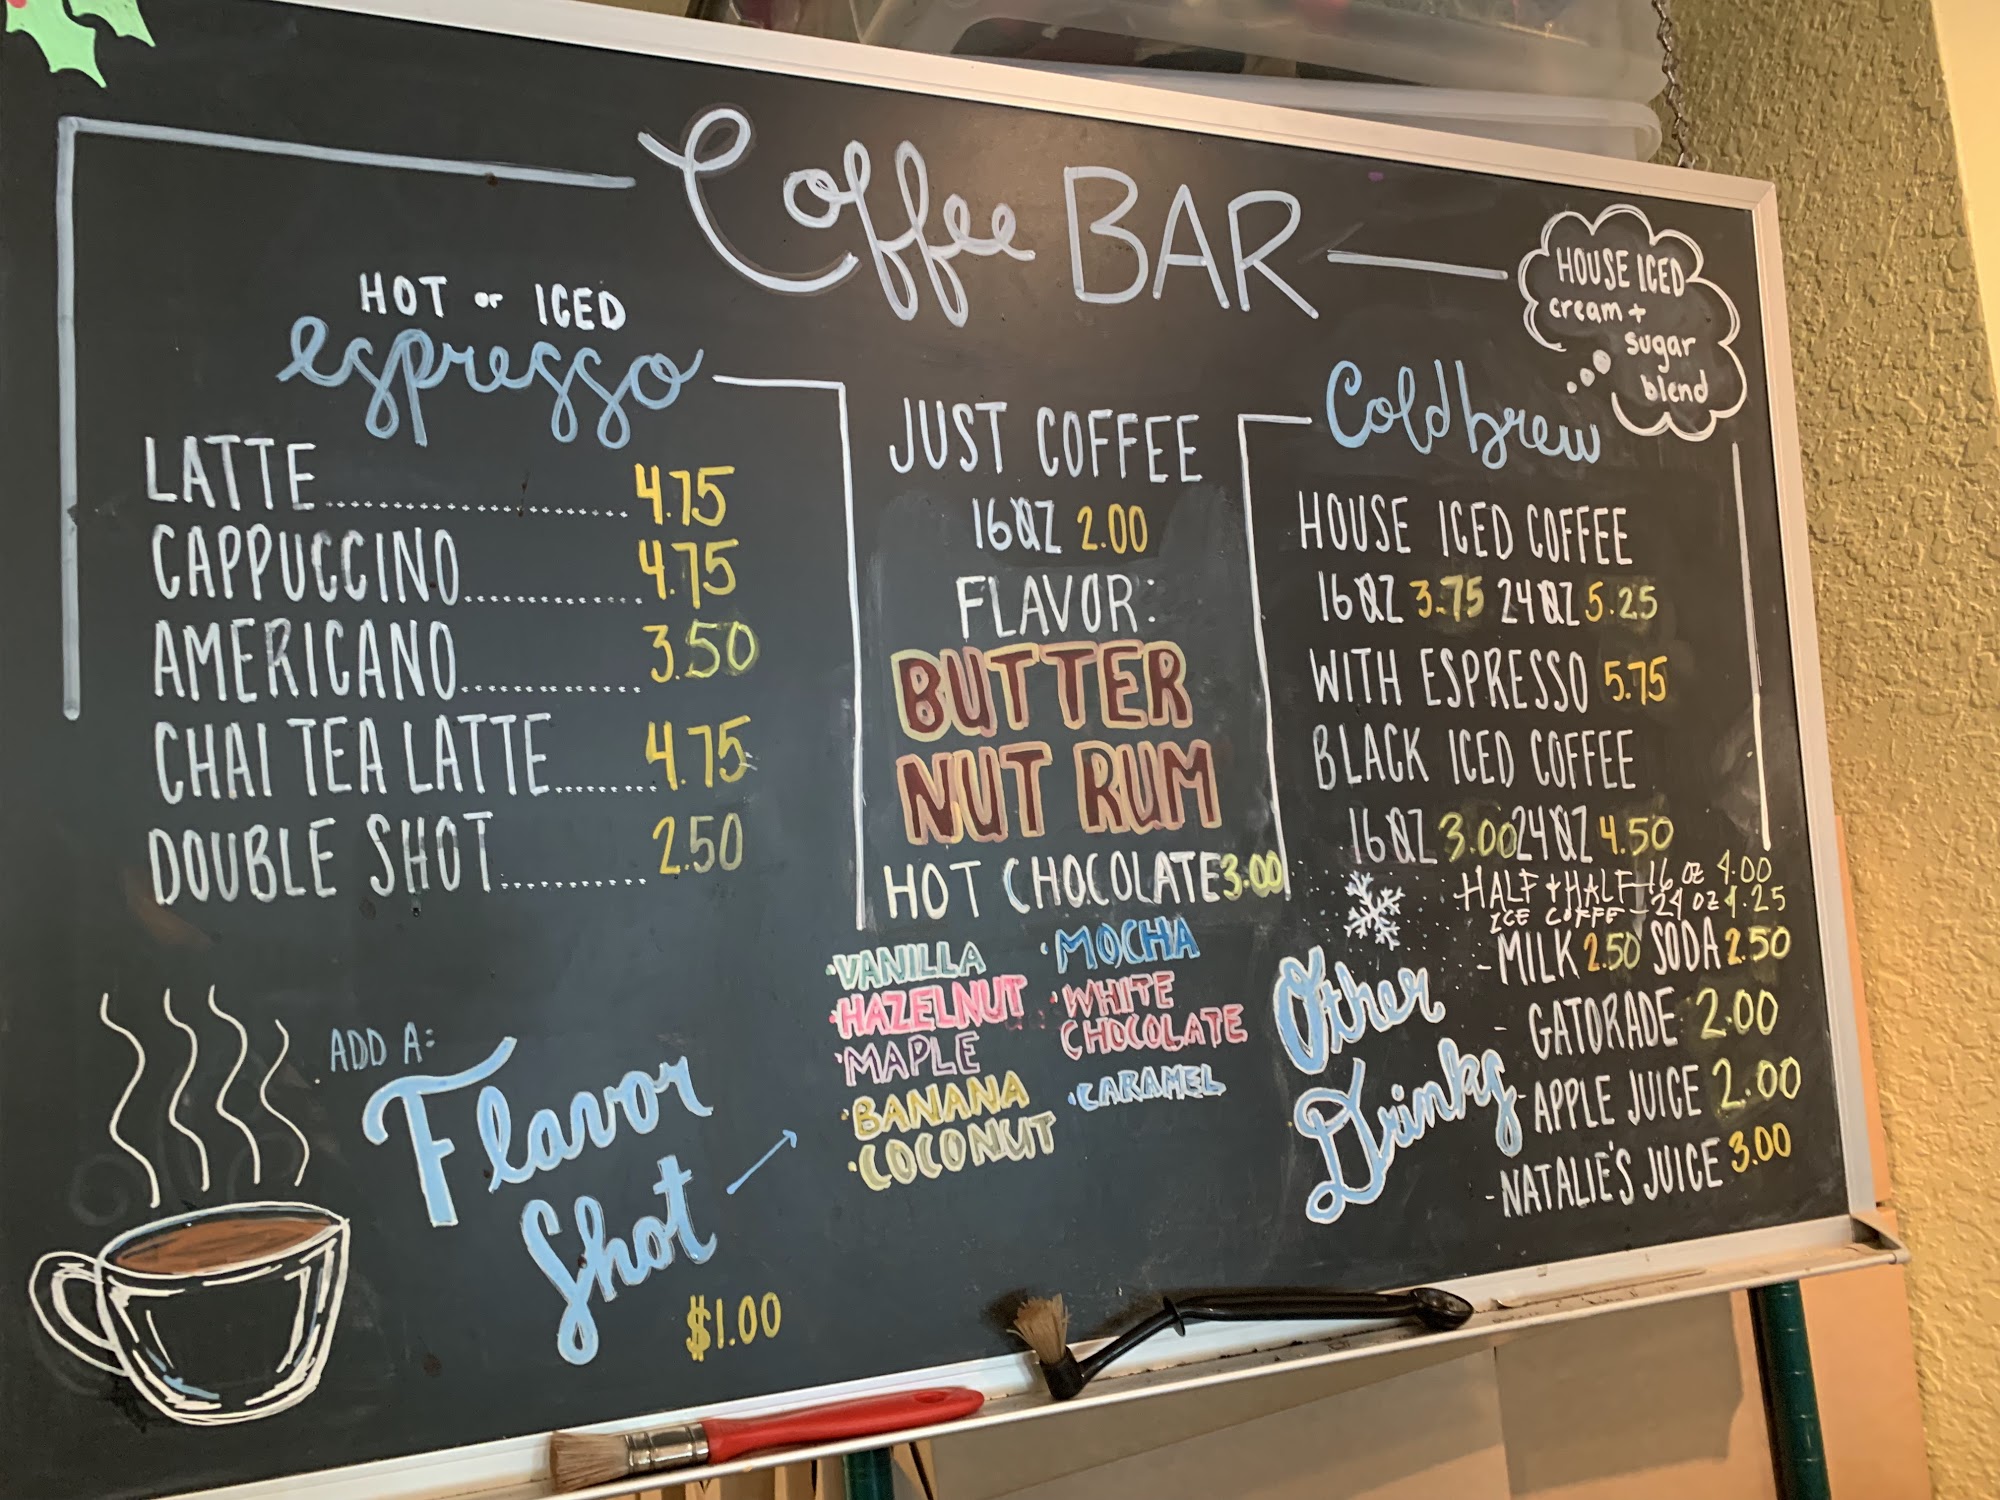 Coffee BAR
HOT or ICED
espresso
LATTE 4.75
CAPPUCCINO 4.75
AMERICANO 3.50
CHAI TEA LATTE 4.75
DOUBLE SHOT 2.50
ADD A:
Flavor
Shot
$1.00
JUST COFFEE
16OZ 2.00
FLAVOR:
BUTTER
NUT RUM
HOT CHOCOLATE 3.00
·VANILLA
·HAZELNUT
·MAPLE
·BANANA
·COCONUT
·MOCHA
·WHITE
CHOCOLATE
·CARAMEL
HOUSE ICED
cream +
sugar
blend
Cold brew
HOUSE ICED COFFEE
16OZ 3.75 24OZ 5.25
WITH ESPRESSO 5.75
BLACK ICED COFFEE
16OZ 3.00 24OZ 4.50
HALF + HALF - 16 OZ 4.00
ICE COFFE - 24 OZ 4.25
Other
Drinks
- MILK 2.50 SODA 2.50
- GATORADE 2.00
- APPLE JUICE 2.00
- NATALIE'S JUICE 3.00